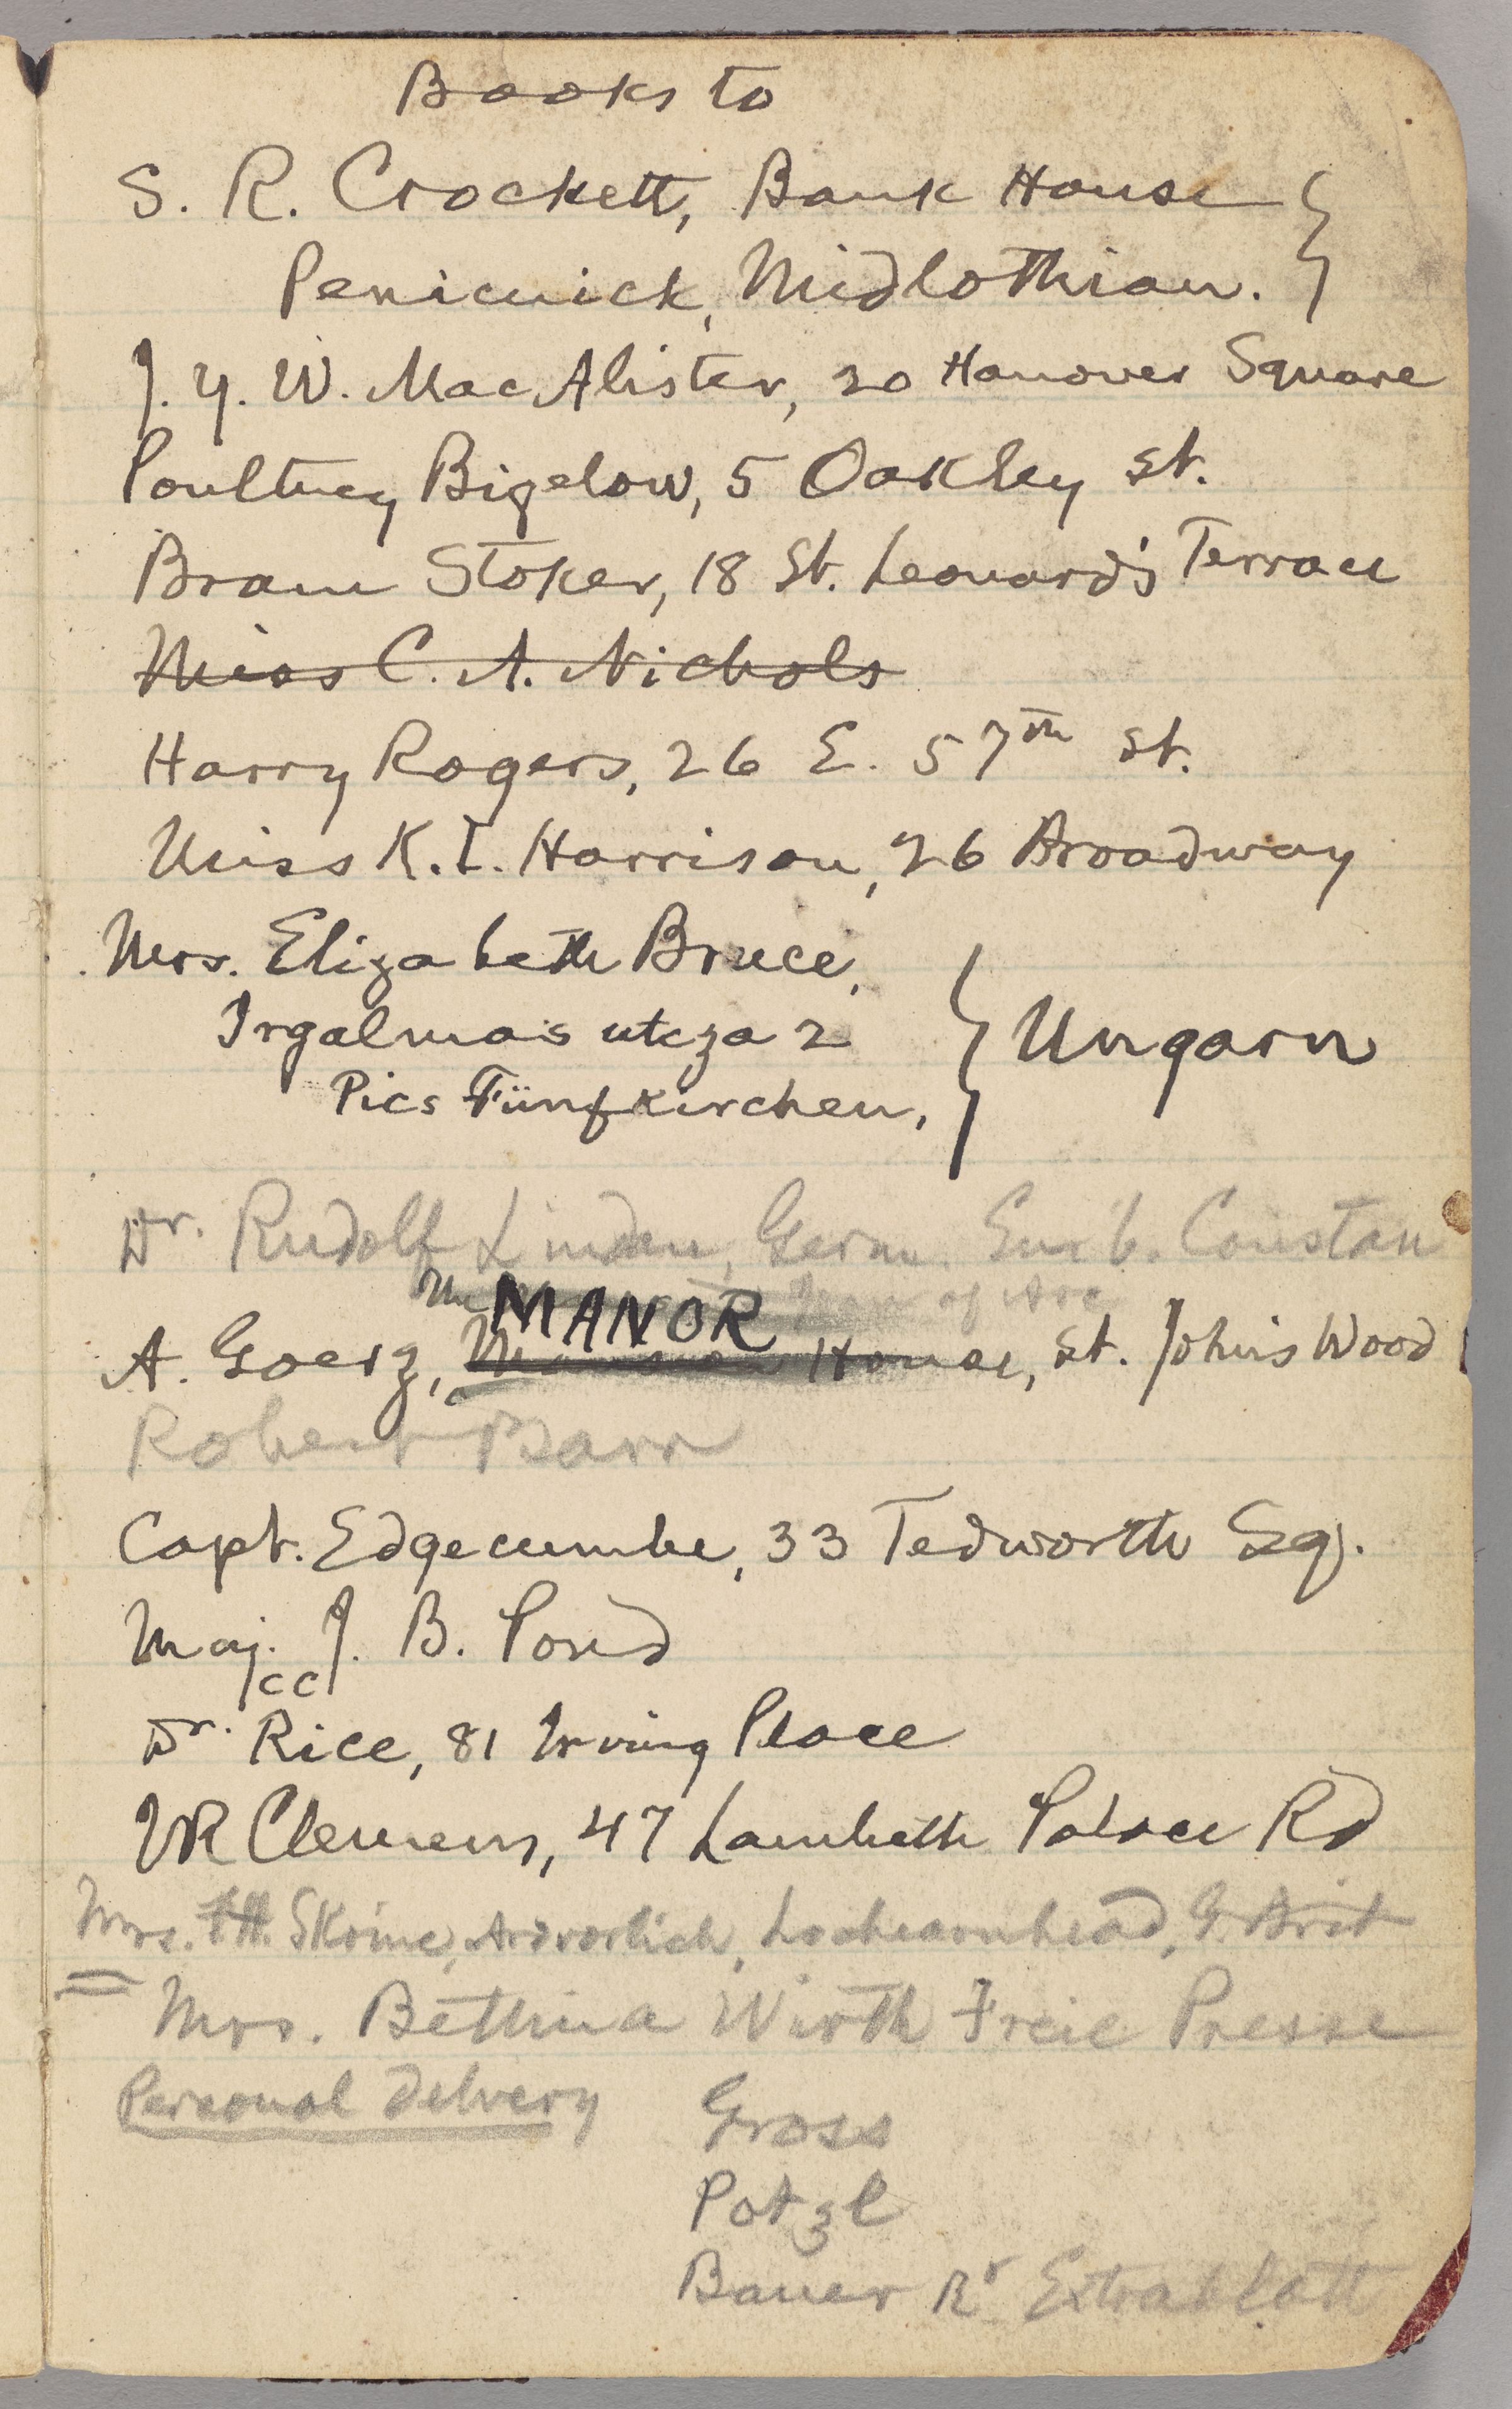 Books to
S. R. Crockett, Bank House
Penicuick, Midlothian.
J. Y. W. MacAlister, 20 Hanover Square
Poultney Bigelow, 5 Oakley st.
Bram Stoker, 18 St. Leonard's Terrace
Miss C. A. Nichols
Harry Rogers, 26 E. 57th st.
Miss K. I. Harrison, 26 Broadway
Mrs. Elizabeth Bruce,
Irgalmas utcza 2
Pics Fünfkirchen,
Ungarn
Dr. Rudolf Lindau, Germ. Emb. Constan
The MANOR of Arc
A. Goerz, House, St. John's Wood
Robert Barr
Capt. Edgecumbe, 33 Tedworth Sq.
Maj. J. B. Pond
CC
Dr. Rice, 81 Irving Place
JR Clemens, 47 Lambeth Palace Rd
Mrs. Skrine, Ardvorlich, Lochearnhead, G. Brit
Mrs. Bettina Wirth Freie Presse
Personal delivery
Gross
Potzl
Bauer Rr Extrablatt